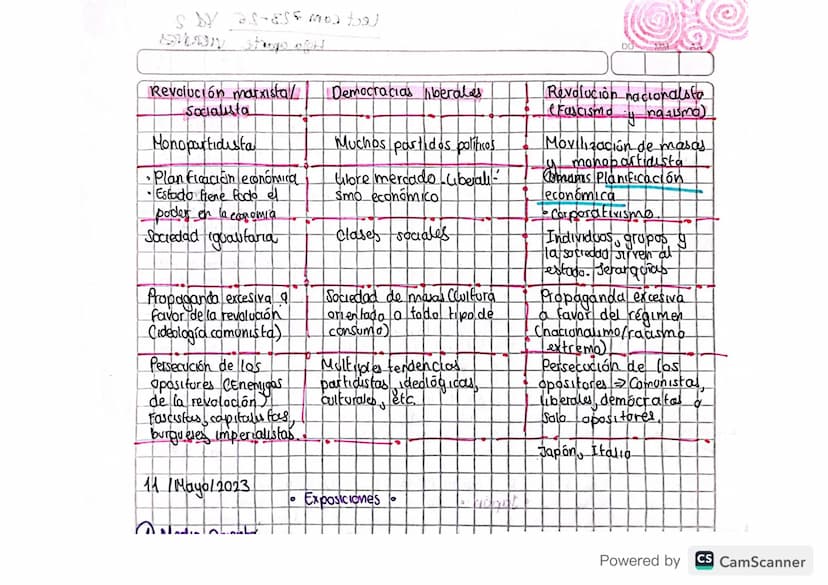 Revolución marxista/
Socialista
Democracias liberales
Revolución nacionalista
(Fascismo y nazismo)
Monopartidista
Muchos partidos políticos
Movilización de masas
y monopartidista
• Planificación económica
• Estado tiene todo el
poder en la economía
Libre mercado - Liberali-
smo económico
Planificación
económica
• Corporativismo.
Sociedad igualitaria
Clases sociales
Individuos, grupos y
la sociedad sirven al
estado. Jerarquías
Propaganda excesiva a
favor de la revolución
(ideología comunista)
Sociedad de masas (Cultura
orientada a todo tipo de
consumo)
Propaganda excesiva
a favor del régimen
(nacionalismo/racismo
extremo)
Persecución de los
opositores (Enemigos
de la revolución)
Fascistas, capitalistas,
burgueses, imperialistas.
Múltiples tendencias
partidistas, ideológicas,
culturales, etc
Persecución de los
opositores ⇒ Comunistas,
liberales, demócratas y
solo opositores.
Japón, Italia
11 /Mayo/2023
• Exposiciones •
Powered by CS CamScanner